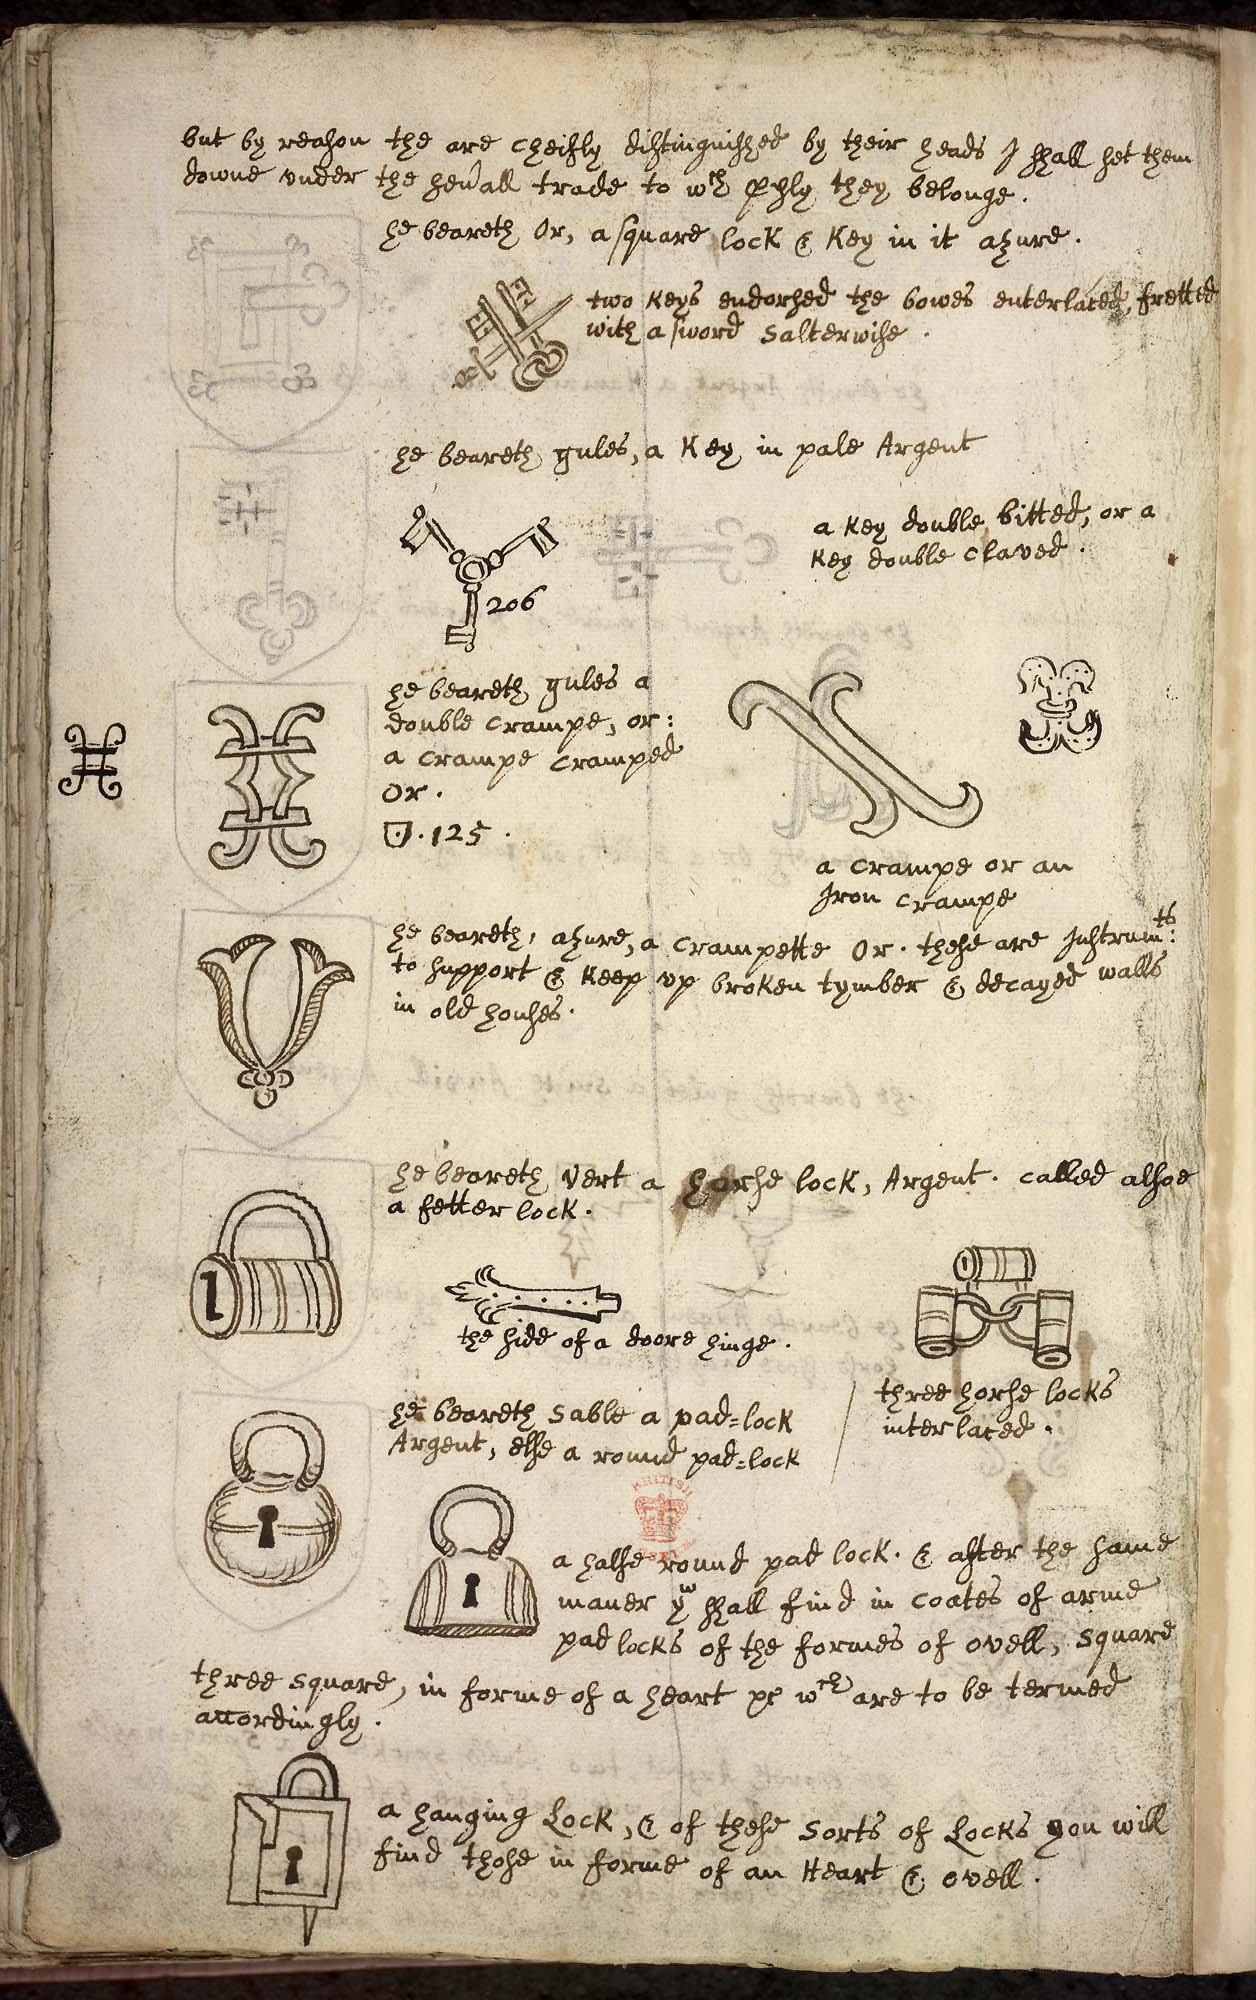 but by reason the are cheifly distinguished by their heads I shall set them
downe vnder the seuall trade to wch pply they belonge.
he beareth Or, a square lock & Key in it azure.
two Keys endorsed the bowes enterlaced, fretted
with a sword Salterwise.
he beareth gules, a Key in pale Argent
a Key double bitted, or a
Key double claved.
206
he beareth gules a
double crampe, or:
a crampe cramped
Or.
.125.
a crampe or an
Iron crampe
he beareth, azure, a crampette Or. these are Instrumts:
to support & Keep vp broken tymber & decayed walls
in old houses.
he beareth Vert a horse lock, Argent. called alsoe
a fetter lock.
the side of a doore hinge.
three horse locks
interlaced.
he beareth Sable a pad=lock
Argent, else a round pad=lock
BRITISH
a halfe round pad lock. & after the same
maner yw shall find in Coates of arme
pad locks of the formes of ovell, square
three square, in forme of a heart wch are to be termed
accordingly.
a hanging Lock, & of these sorts of Locks you will
find those in forme of an Heart & ovell.